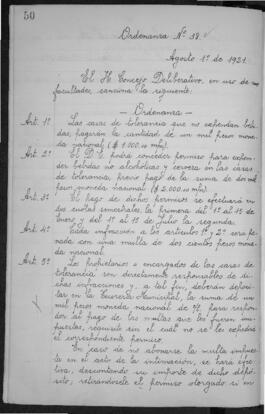 50
Ordenanza Nº 18.
Agosto 1º de 1921.
El H. Concejo Deliberativo, en uso de sus
facultades, sanciona la siguiente:
— Ordenanza —
Art. 1º Las casas de tolerancia que no expendan bebi-
das, pagarán la cantidad de un mil pesos mone-
da nacional ($ 1.000.00 m/n).
Art. 2º El D. E. podrá conceder permiso para expen-
der bebidas no alcohólicas y cerveza en las casas
de tolerancia, previo pago de la suma de dos mil
pesos moneda nacional ($ 2.000.00 m/n).
Art. 3º El pago de dichos permisos se efectuará en
dos cuotas semestrales: la primera del 1º al 15 de
Enero y del 1º al 15 de julio la segunda.
Art. 4º Cada infracción a los artículos 1º y 2º será pe-
nada con una multa de dos cientos pesos mone-
da nacional.
Art. 5º Los propietarios o encargados de las casas de
tolerancia son directamente responsables de di-
chas infracciones y, a tal fin, deberán deposi-
tar en la Tesorería Municipal, la suma de un
mil pesos moneda nacional de c/l. para respon-
der al pago de las multas que les fueren im-
puestas, requisito sin el cuál no se les expedirá
el correspondiente permiso.
En caso de no abonarse la multa impues-
ta en el acto de la intimación, se hará efec-
tiva, descontando su importe de dicho depó-
sito, retirándosele el permiso otorgado si en